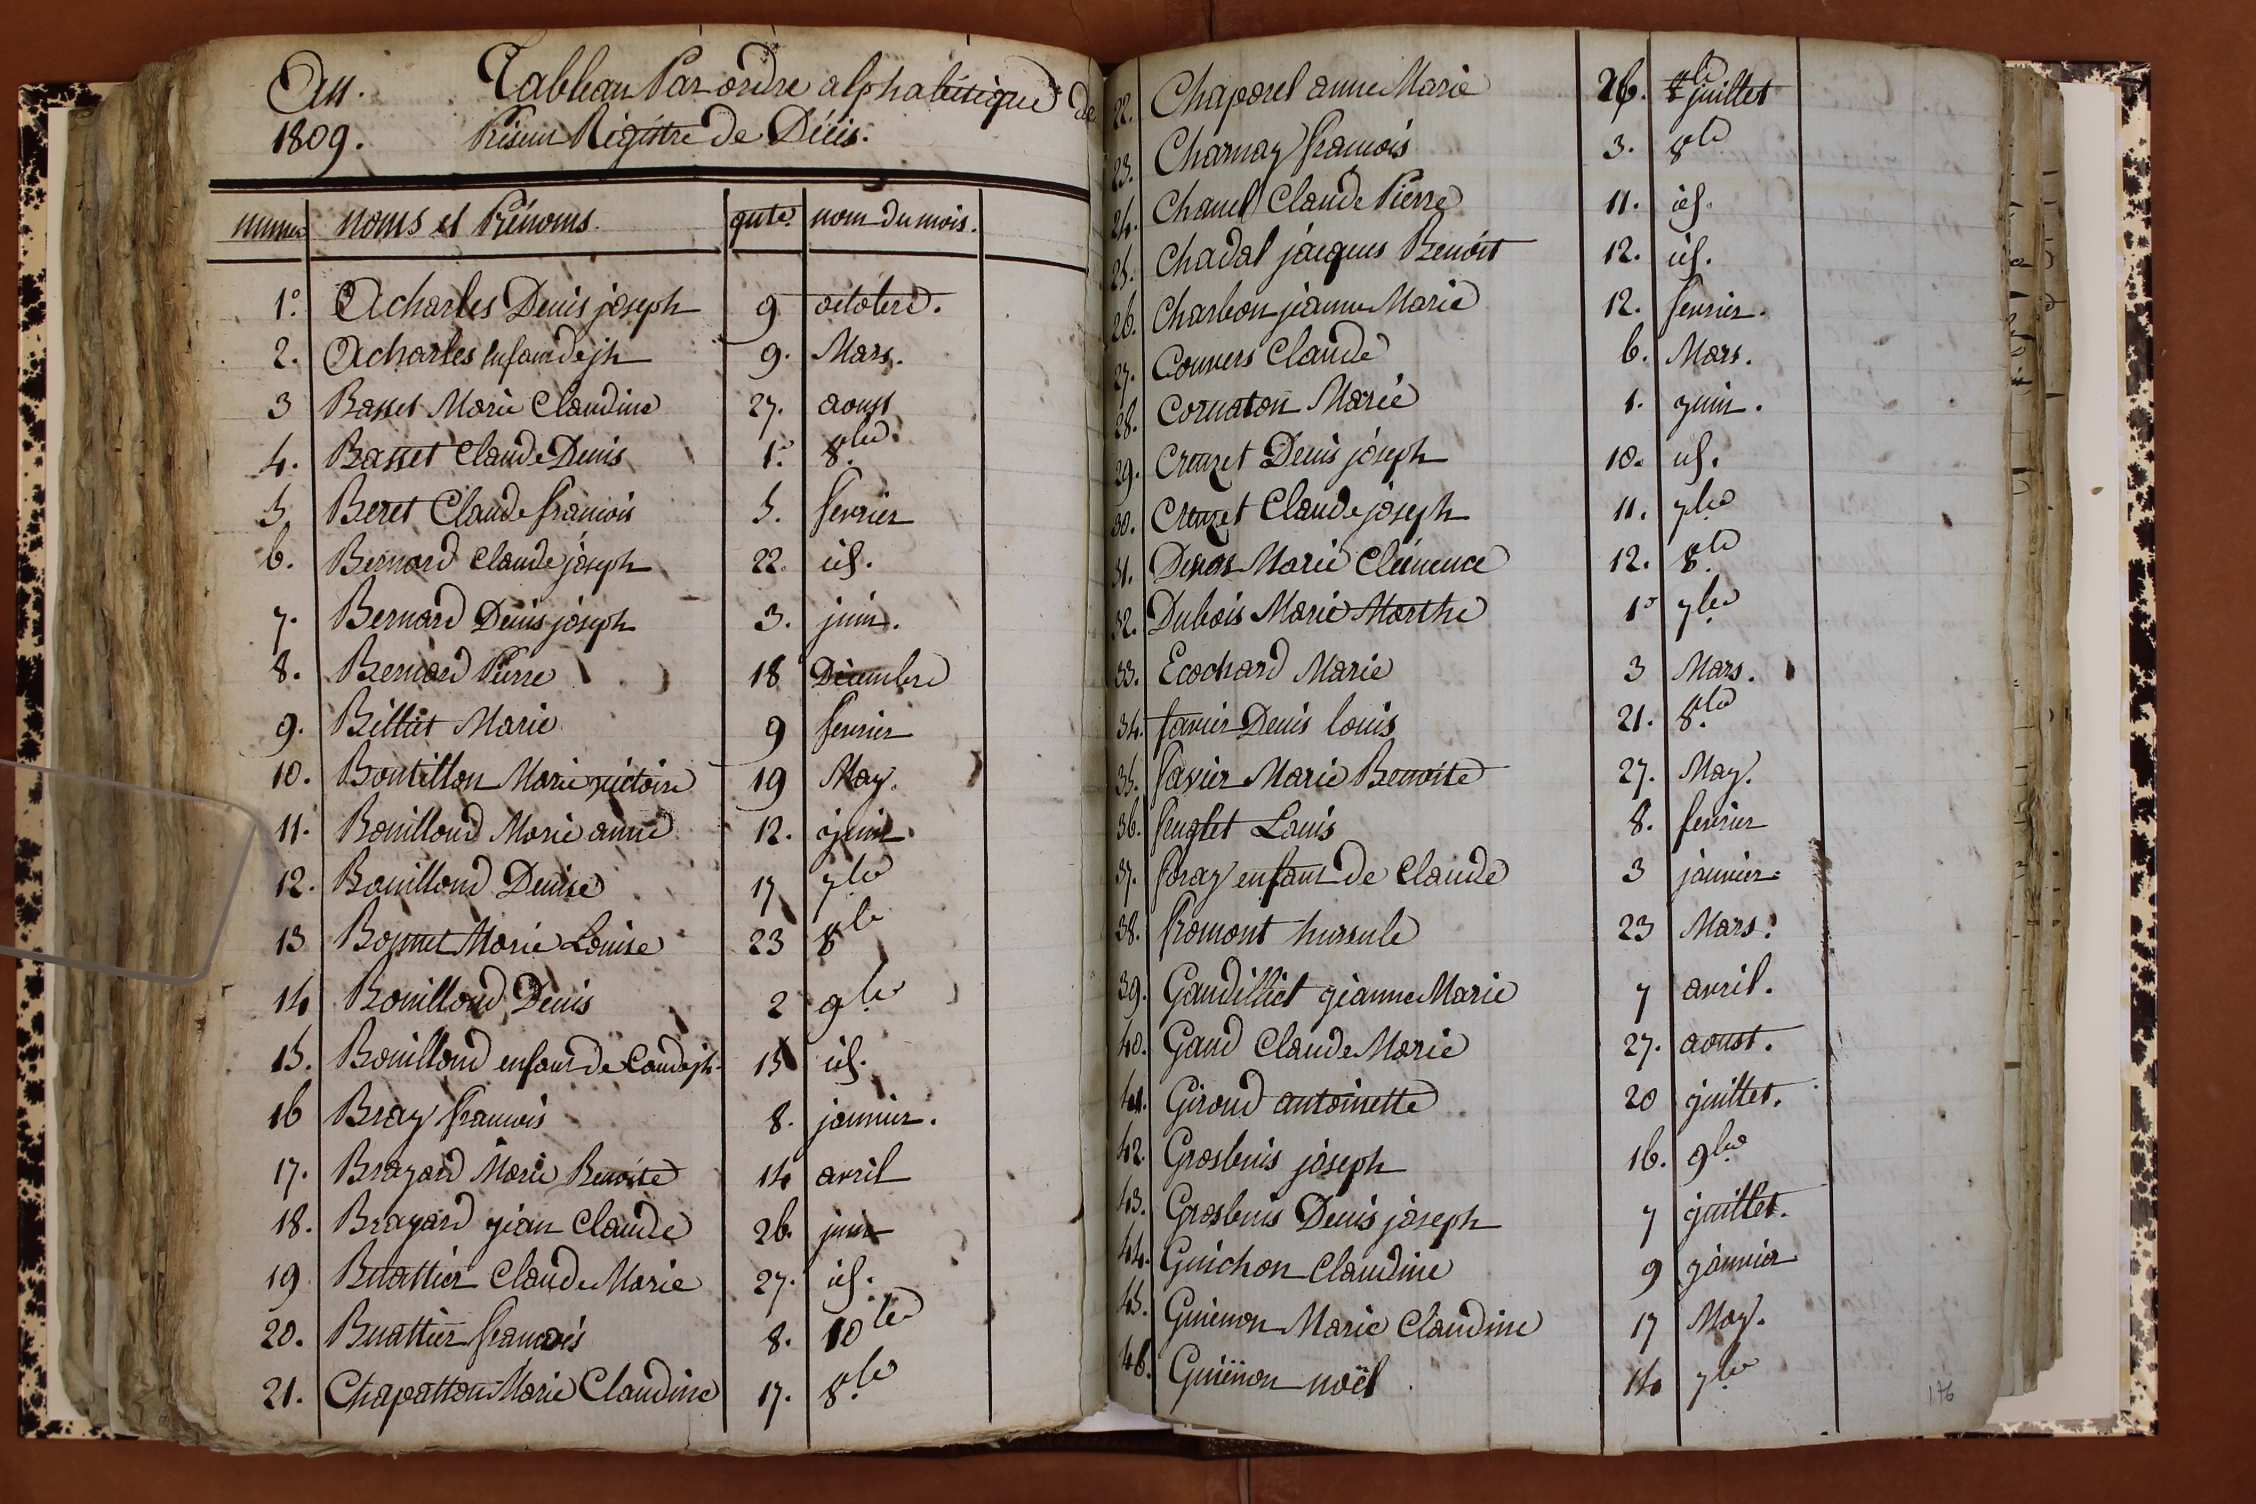 An. Tableau Par ordre alphabétique de
1809. Présent Régistre de Décès.
numer noms et Prénoms. qute. nom du mois.
1º. Acharles Denis joseph 9 octobre.
2. Acharles Enfant de jh 9. Mars.
3 Basset Marie Claudine 27. aoust
4. Basset Claude Denis 1.º 8.bre
5 Beret Claude francois 5. fevrier
6. Bernard Claude joseph 22. id.
7. Bernard Denis joseph 3. juin.
8. Bernard Pierre 18 Décembre
9. Billiet Marie 9 fevrier
10. Boutillon Marie victoire 19 May.
11. Bouilloud Marie anne 12. juin
12. Bouilloud Denise 17 7bre
13 Bonnet Marie Louise 23 8bre
14 Bouilloud Denis 2 9.bre
15. Bouilloud enfant de Claude jh. 15 id.
16 Bray francois 8. janvier.
17. Brayard Marie Benoite 14 avril
18. Brayard jean Claude 26. juin
19 Buattier Claude Marie 27. id.
20. Buattier francois 8. 10bre
21. Chapatton Marie Claudine 17. 8.bre
22. Chaporel anne Marie 26. juillet
23. Charnay francois 3. 8bre
24. Chanel Claude Pierre 11. id.
25. Chadal jacques Benoit 12. id.
26. Charbon jeanne Marie 12. fevrier.
27. Convers Claude 6. Mars.
28. Cornaton Marie 1. juin.
29. Creuzet Denis joseph 10. id.
30. Creuzet Claude joseph 11. 7bre
31. Marie Clémence 12. 8.bre
32. Dubois Marie Marthe 1º 7bre
33. Ecochard Marie 3 Mars.
34. favier Denis louis 21. 8.bre
35. favier Marie Benoite 27. May.
36. Louis 8. fevrier
37. foray enfant de Claude 3 janvier.
38. fromont hursule 23 Mars.
39. Gaudilliet jeanne Marie 7 avril.
40. Gaud Claude Marie 27. aoust.
41. Giroud antoinette 20 juillet.
42. Grosbuis joseph 16. 9bre
43. Grosbuis Denis joseph 7 juillet.
44. Guichon Claudine 9 janvier
45. Guienon Marie Claudine 17 May.
46. Guiënon noël 14 7bre
176